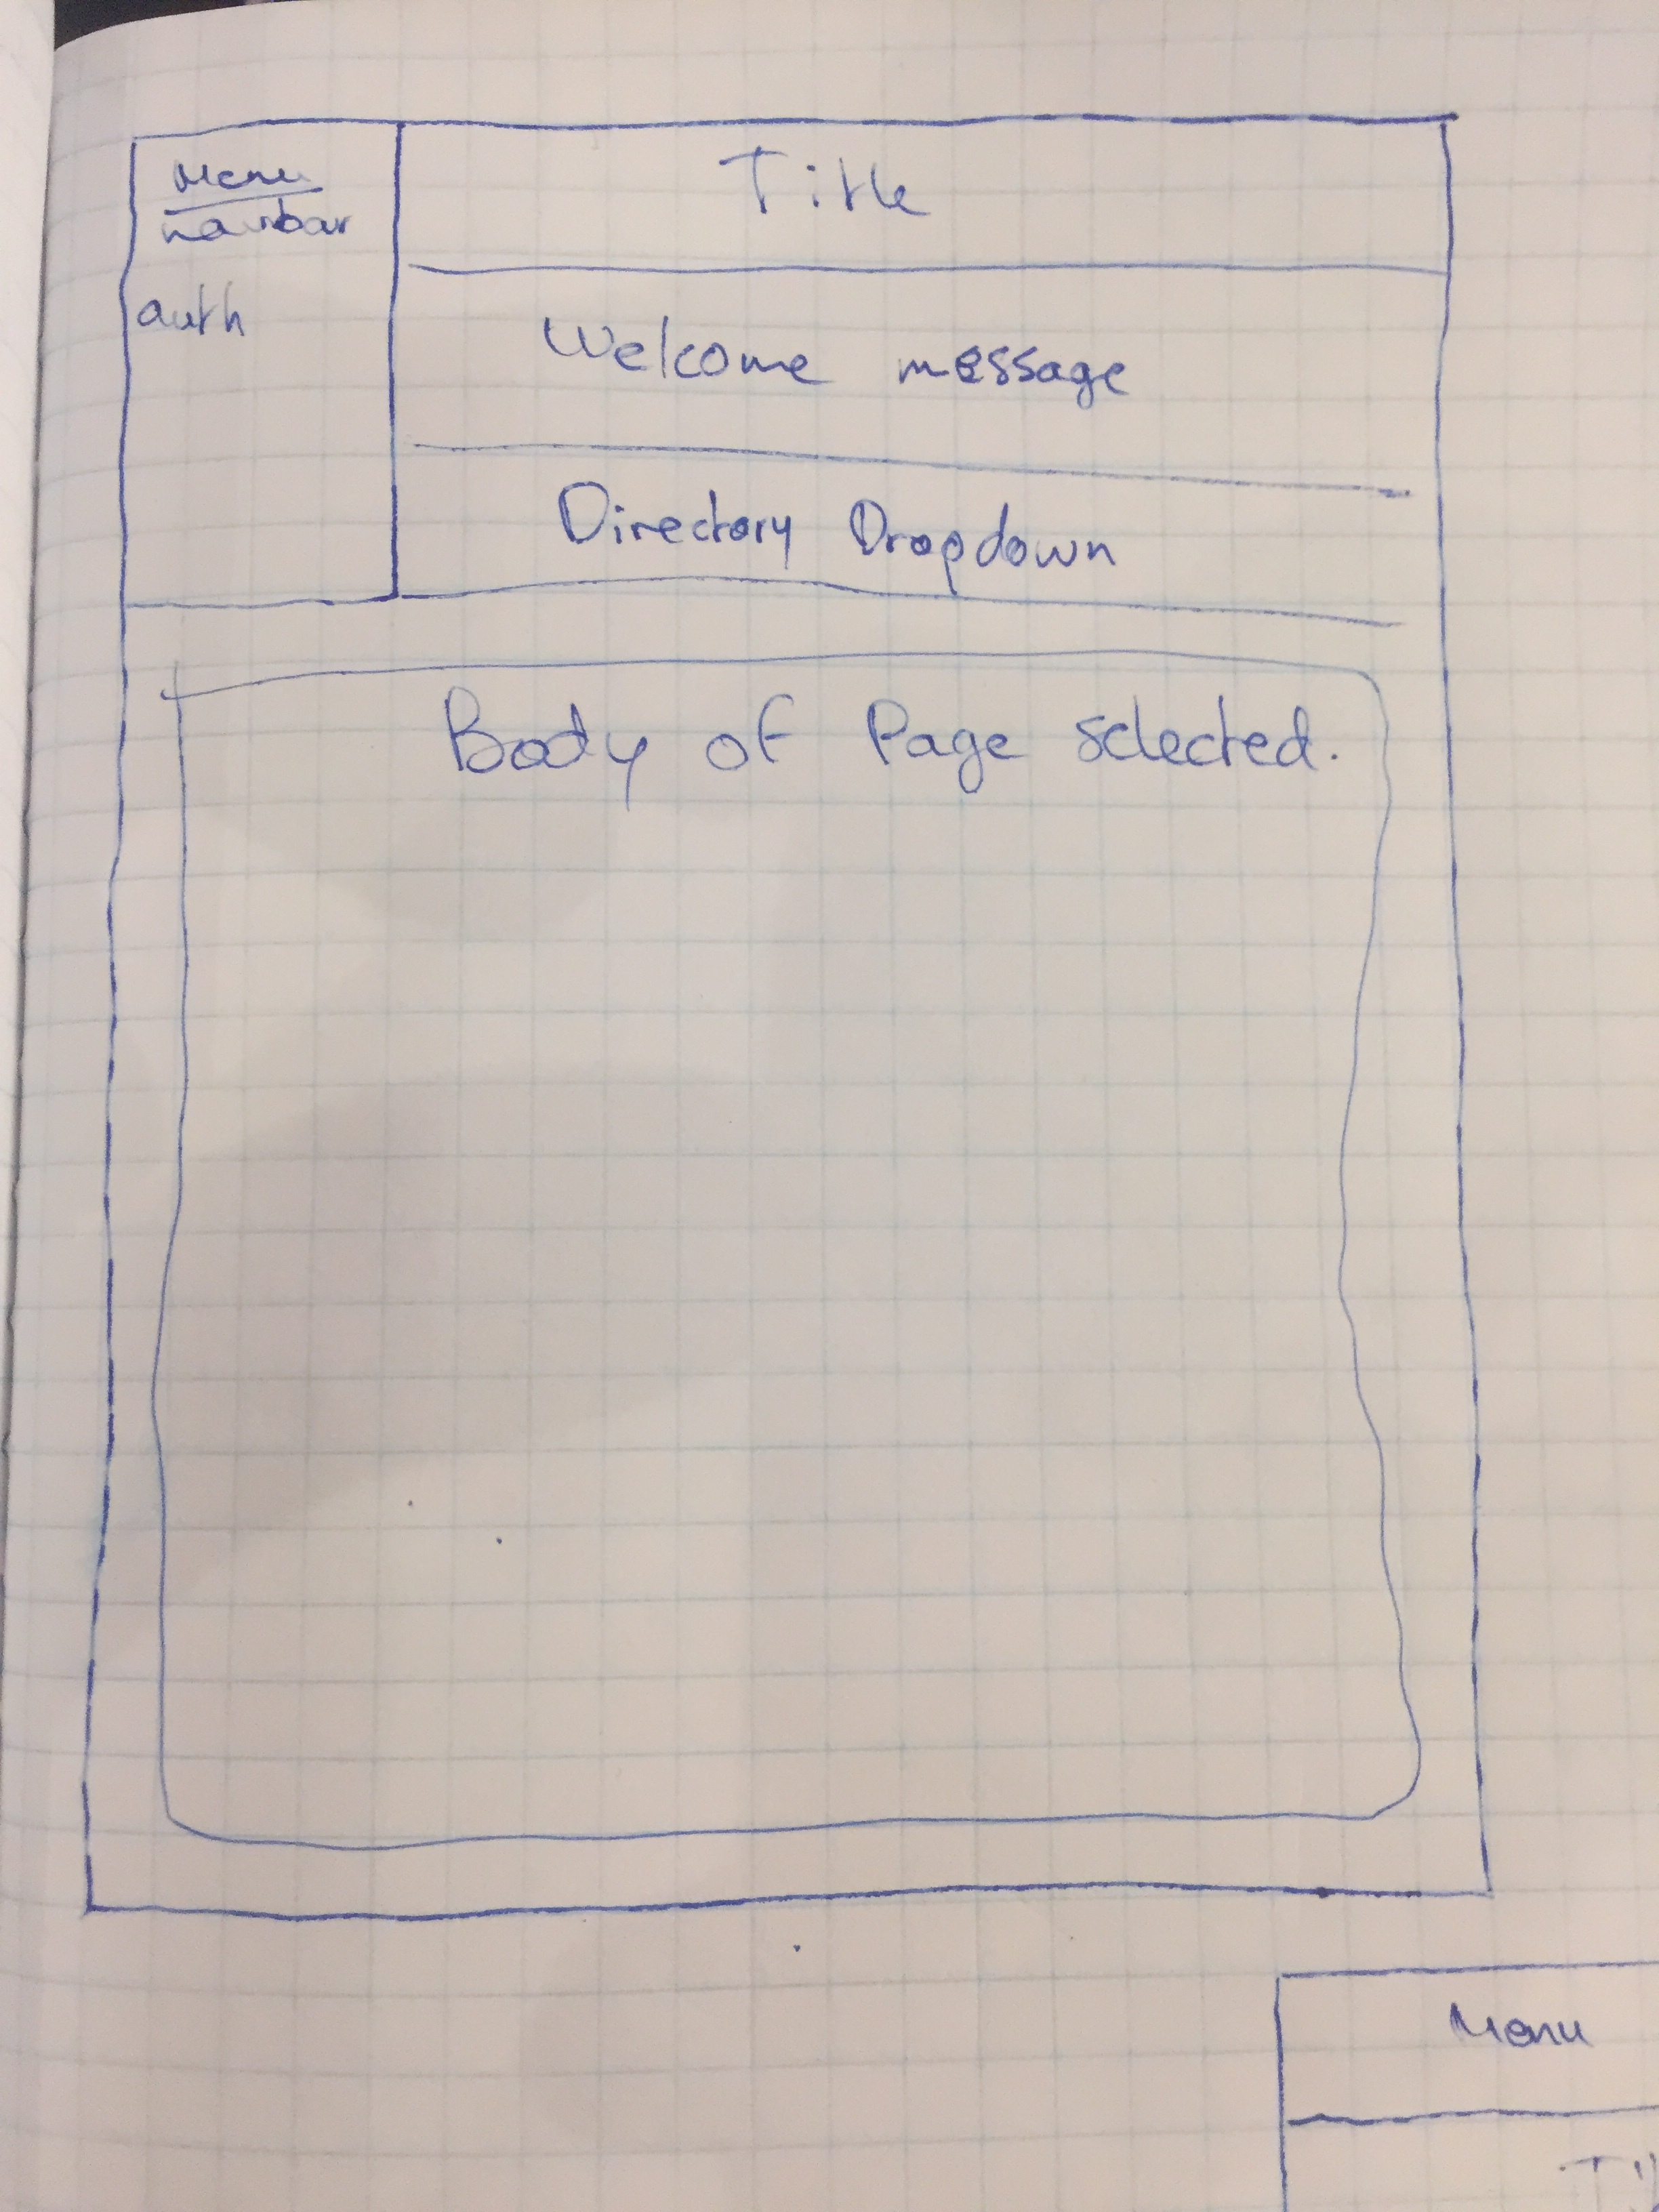 Menu
navbar
auth
Title
Welcome message
Directory Dropdown
Body of Page selected.
Menu